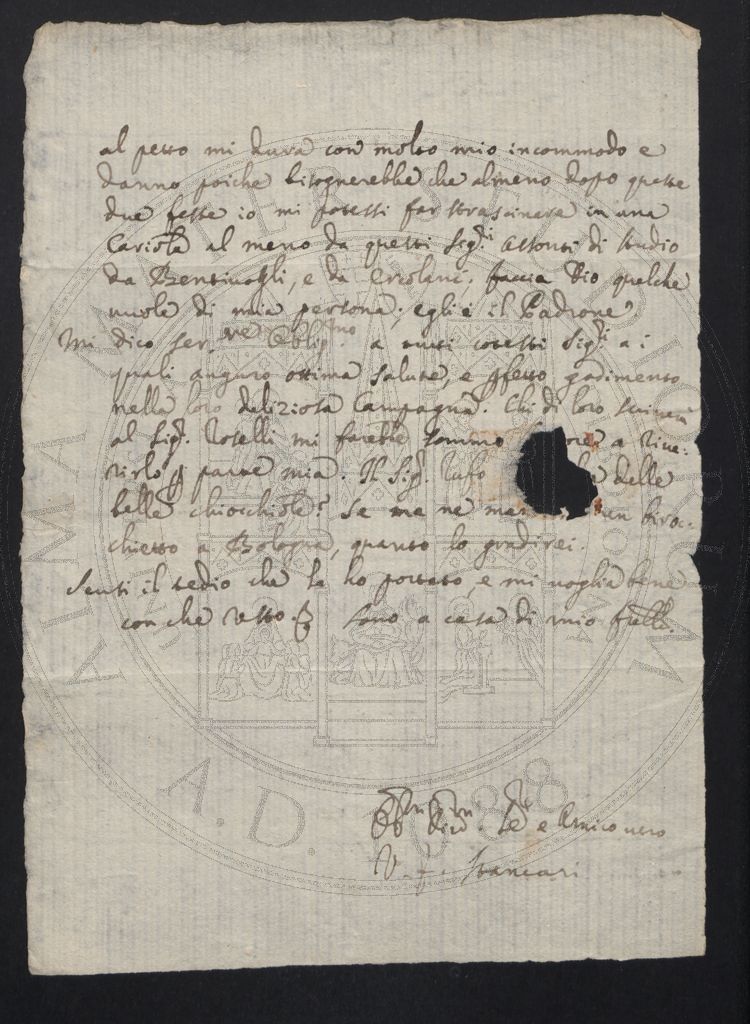 al petto mi dura con molto mio incommodo e
danno poiche bisognerebbe che almeno dopo queste
due feste io mi potessi far strascinare in una
Cariola al meno da questi Sig.ri Assonti di studio
da Bentivogli, e da Ercolani. faccia Dio quelche
vuole di mia persona, egli è il Padrone
Mi dico ser.re Oblig.mo a tutti cotesti Sig.ri a i
quali auguro ottima salute, e pfetto godimento
nella loro deliziosa Campagna. Chi di loro scriverà
al Sig. Roselli mi farebbe sommo a rive:
rirlo p parte mia. Il Sig. delle
belle chiocchiole? Se me ne un biroc:
chietto a Bologna, quanto lo godirei.
Scusi il tedio che le ho portato, e mi voglia bene
con che resto Sono a casa di mio frello
Se.re e Amico vero
V. F. Stancari
ALMA MATER STUDIORUM
A.D. 1088